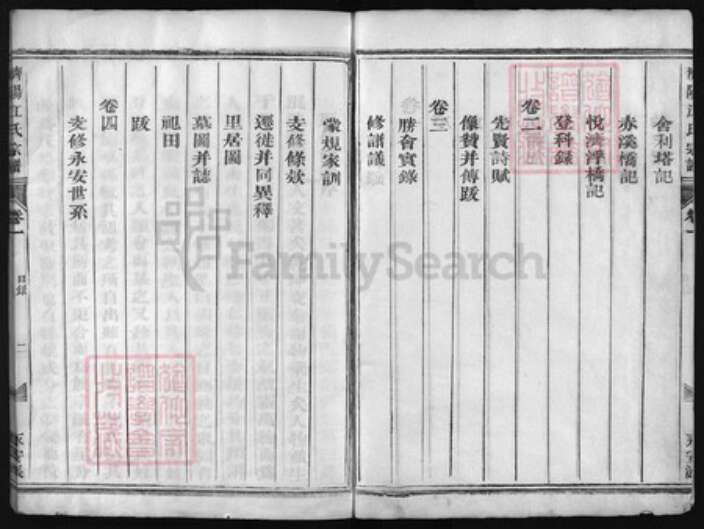 舍利塔記
赤溪橋記
悅濟浮橋記
登科錄
卷二
先賢詩賦
像贊并傳跋
卷三
勝會實錄
修譜議
黨規家訓
支修條款
遷徙并同異釋
里居圖
墓圖并誌
祀田
跋
卷四
支修永安世系
濟陽江氏宗譜
卷一
目錄
二
永安派
濟陽江氏宗譜
卷一
永安派
FamilySearch